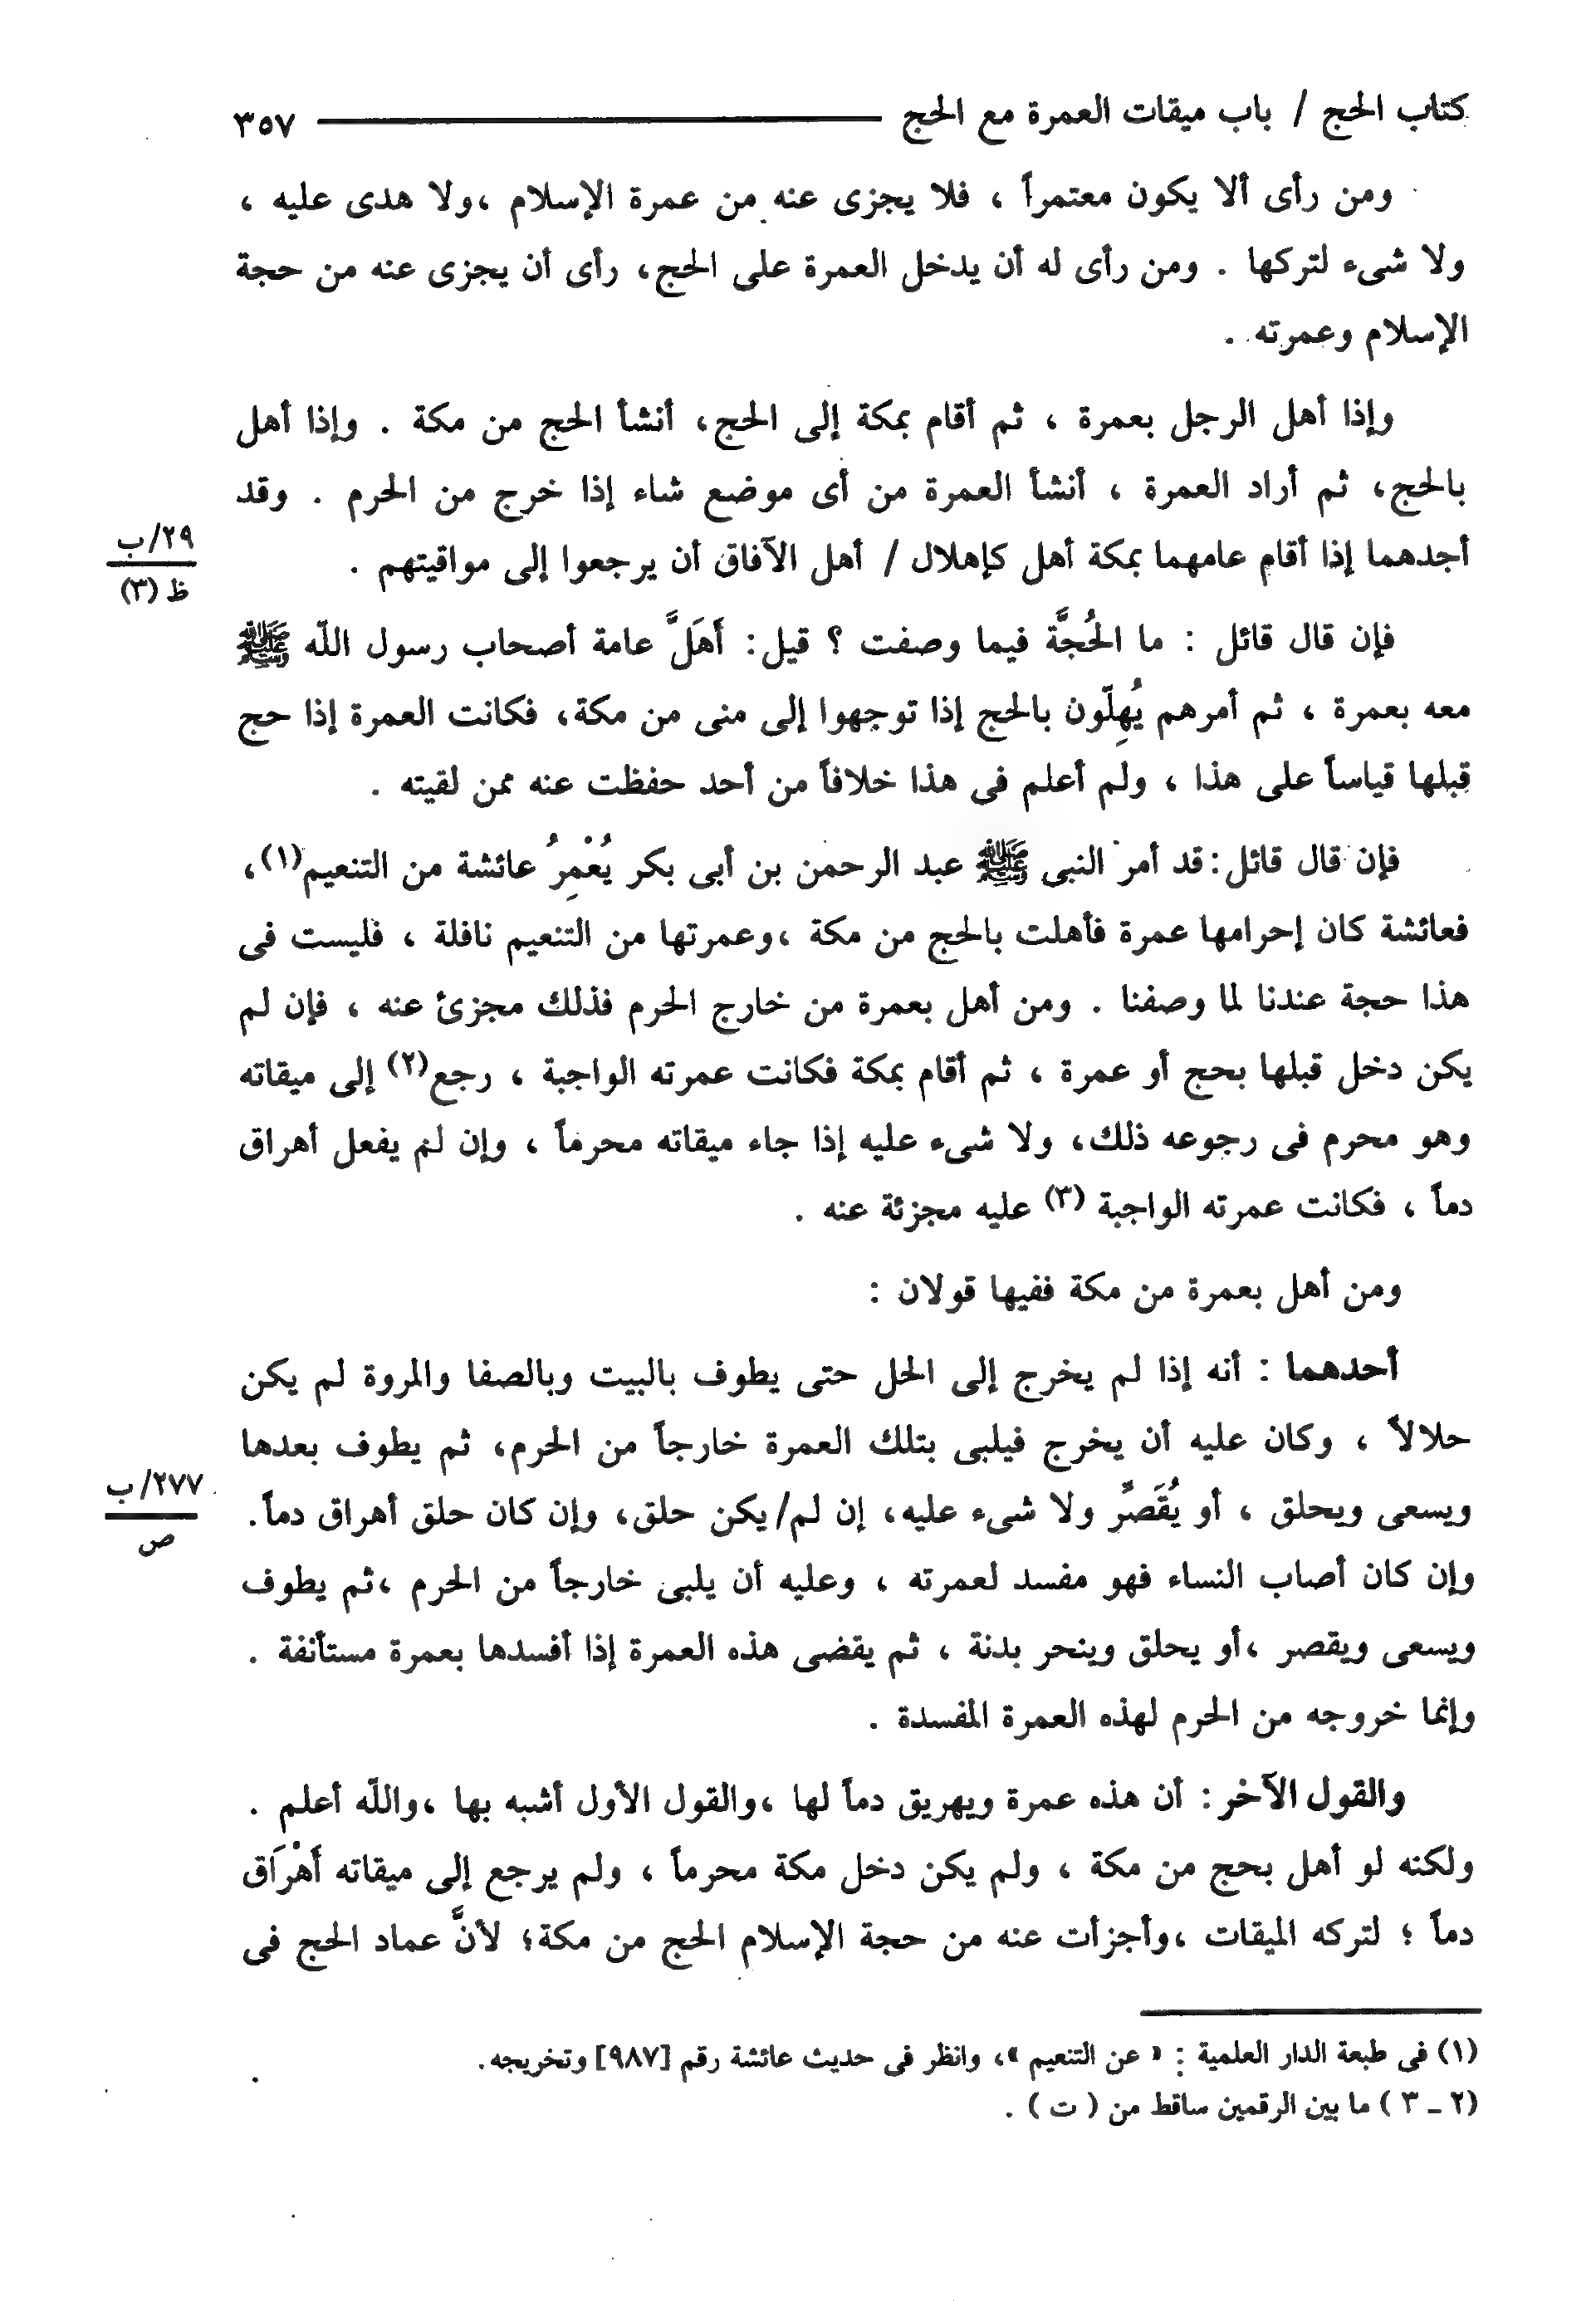 كتاب الحج / باب ميقات العمرة مع الحج ٣٥٧
ومن رأى ألا يكون معتمراً ، فلا يجزى عنه من عمرة الإسلام ،ولا هدى عليه ،
ولا شىء لتركها . ومن رأى له أن يدخل العمرة على الحج، رأى أن يجزى عنه من حجة
الإسلام وعمرته .
وإذا أهل الرجل بعمرة ، ثم أقام بمكة إلى الحج، أنشأ الحج من مكة . وإذا أهل
بالحج، ثم أراد العمرة ، أنشأ العمرة من أى موضع شاء إذا خرج من الحرم . وقد
أجدهما إذا أقام عامهما بمكة أهل كإهلال / أهل الآفاق أن يرجعوا إلى مواقيتهم .
٢٩/ب
ظ (٣)
فإن قال قائل : ما الحُجَّة فيما وصفت ؟ قيل: أَهَلَّ عامة أصحاب رسول اللّه ﷺ
معه بعمرة ، ثم أمرهم يُهِلّون بالحج إذا توجهوا إلى منى من مكة، فكانت العمرة إذا حج
قبلها قياساً على هذا ، ولم أعلم فى هذا خلافاً من أحد حفظت عنه ممن لقيته .
فإن قال قائل:قد أمر النبى ﷺ عبد الرحمن بن أبى بكر يُعْمِرُ عائشة من التنعيم(١)،
فعائشة كان إحرامها عمرة فأهلت بالحج من مكة ،وعمرتها من التنعيم نافلة ، فليست فى
هذا حجة عندنا لما وصفنا . ومن أهل بعمرة من خارج الحرم فذلك مجزئ عنه ، فإن لم
يكن دخل قبلها بحج أو عمرة ، ثم أقام بمكة فكانت عمرته الواجبة ، رجع(٢) إلى ميقاته
وهو محرم فى رجوعه ذلك، ولا شىء عليه إذا جاء ميقاته محرماً ، وإن لم يفعل أهراق
دماً ، فكانت عمرته الواجبة (٣) عليه مجزئة عنه .
ومن أهل بعمرة من مكة ففيها قولان :
أحدهما : أنه إذا لم يخرج إلى الحل حتى يطوف بالبيت وبالصفا والمروة لم يكن
حلالاً ، وكان عليه أن يخرج فيلبى بتلك العمرة خارجاً من الحرم، ثم يطوف بعدها
ويسعى ويحلق ، أو يُقَصِّر ولا شىء عليه، إن لم/يكن حلق، وإن كان حلق أهراق دماً.
٢٧٧/ب
ص
وإن كان أصاب النساء فهو مفسد لعمرته ، وعليه أن يلبى خارجاً من الحرم ،ثم يطوف
ويسعى ويقصر ،أو يحلق وينحر بدنة ، ثم يقضى هذه العمرة إذا أفسدها بعمرة مستأنفة .
وإنما خروجه من الحرم لهذه العمرة المفسدة .
والقول الآخر: أن هذه عمرة ويهريق دماً لها ،والقول الأول أشبه بها ،واللّه أعلم .
ولكنه لو أهل بحج من مكة ، ولم يكن دخل مكة محرماً ، ولم يرجع إلى ميقاته أَهْرَاق
دماً ؛ لتركه الميقات ،وأجزأت عنه من حجة الإسلام الحج من مكة؛ لأنَّ عماد الحج فى
(١) فى طبعة الدار العلمية : « عن التنعيم »، وانظر فى حديث عائشة رقم [٩٨٧] وتخريجه.
(٢ ـ ٣ ) ما بين الرقمين ساقط من ( ت ) .